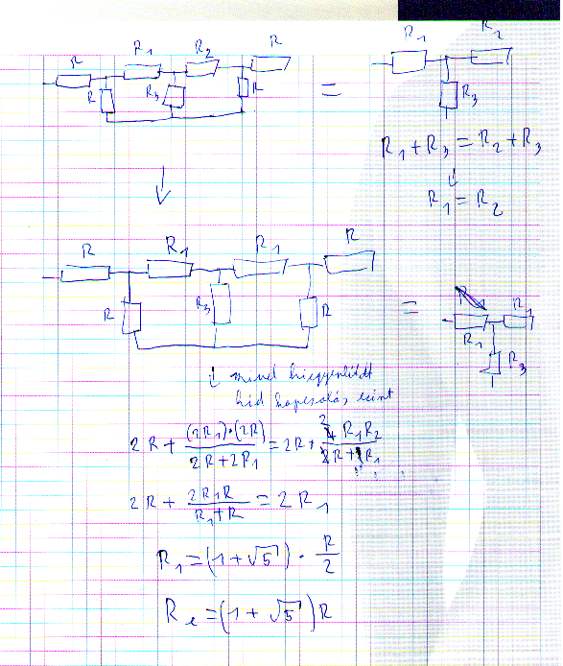 R R₁ R₂ R
R R₃ R
=
R₁ R₂
R₃
R₁ + R₃ = R₂ + R₃
↓
R₁ = R₂
↓
R R₁ R₁ R
R R₃ R
=
R₁ R₁
R₃
↓ mivel kiegyenlített
híd kapcsolás,
2R + (2R₁)·(2R) / 2R + 2R₁ = 2R + 2 R₁R₂ / R + R₁
2R + 2R₁R / R₁ + R = 2R₁
R₁ = (1 + √5) · R / 2
Rₑ = (1 + √5) R